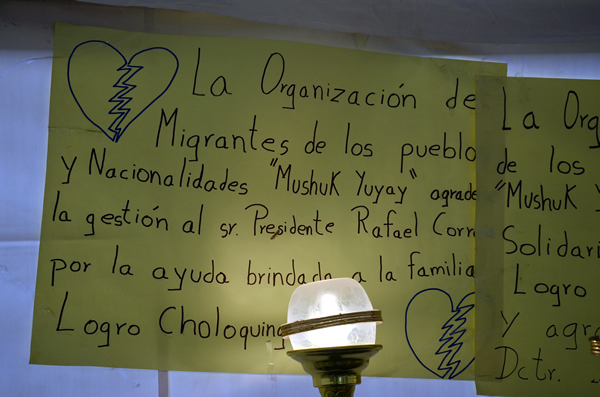 La Organización de
Migrantes de los pueblo
y Nacionalidades "Mushuk Yuyay" agrade
la gestión al sr. Presidente Rafael Corr
por la ayuda brindada a la familia
Logro Choloquing
La Org
de los
"Mushuk Y
Solidari
Logro
y agr
Dctr.